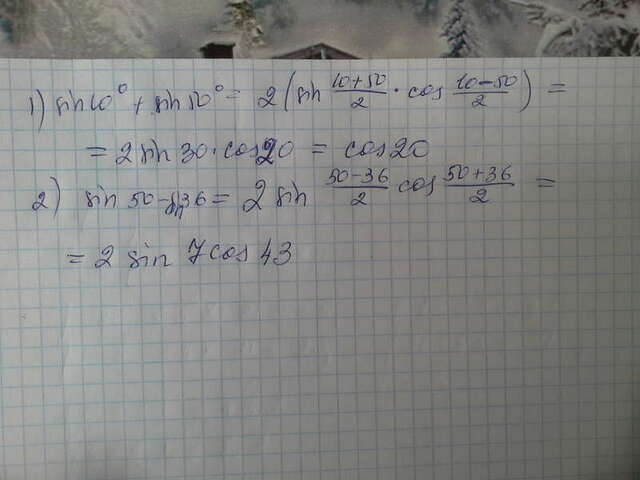 1) sin10° + sin50° = 2(sin (10+50)/2 · cos (10-50)/2) =
= 2 sin 30 · cos20 = cos20
2) sin 50 - sin36 = 2 sin (50-36)/2 cos (50+36)/2 =
= 2 sin 7 cos 43